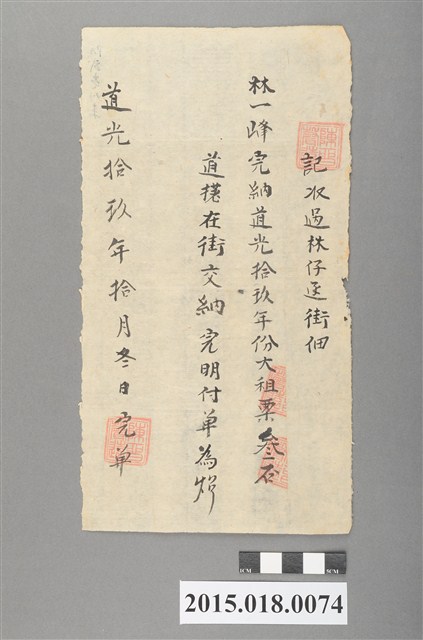 記收過林仔迯街佃
林一峰完納道光拾玖年份大租粟叁石
道棧在街交納完明付单為炤
道光拾玖年拾月冬日完单
1CM
5CM
2015.018.0074